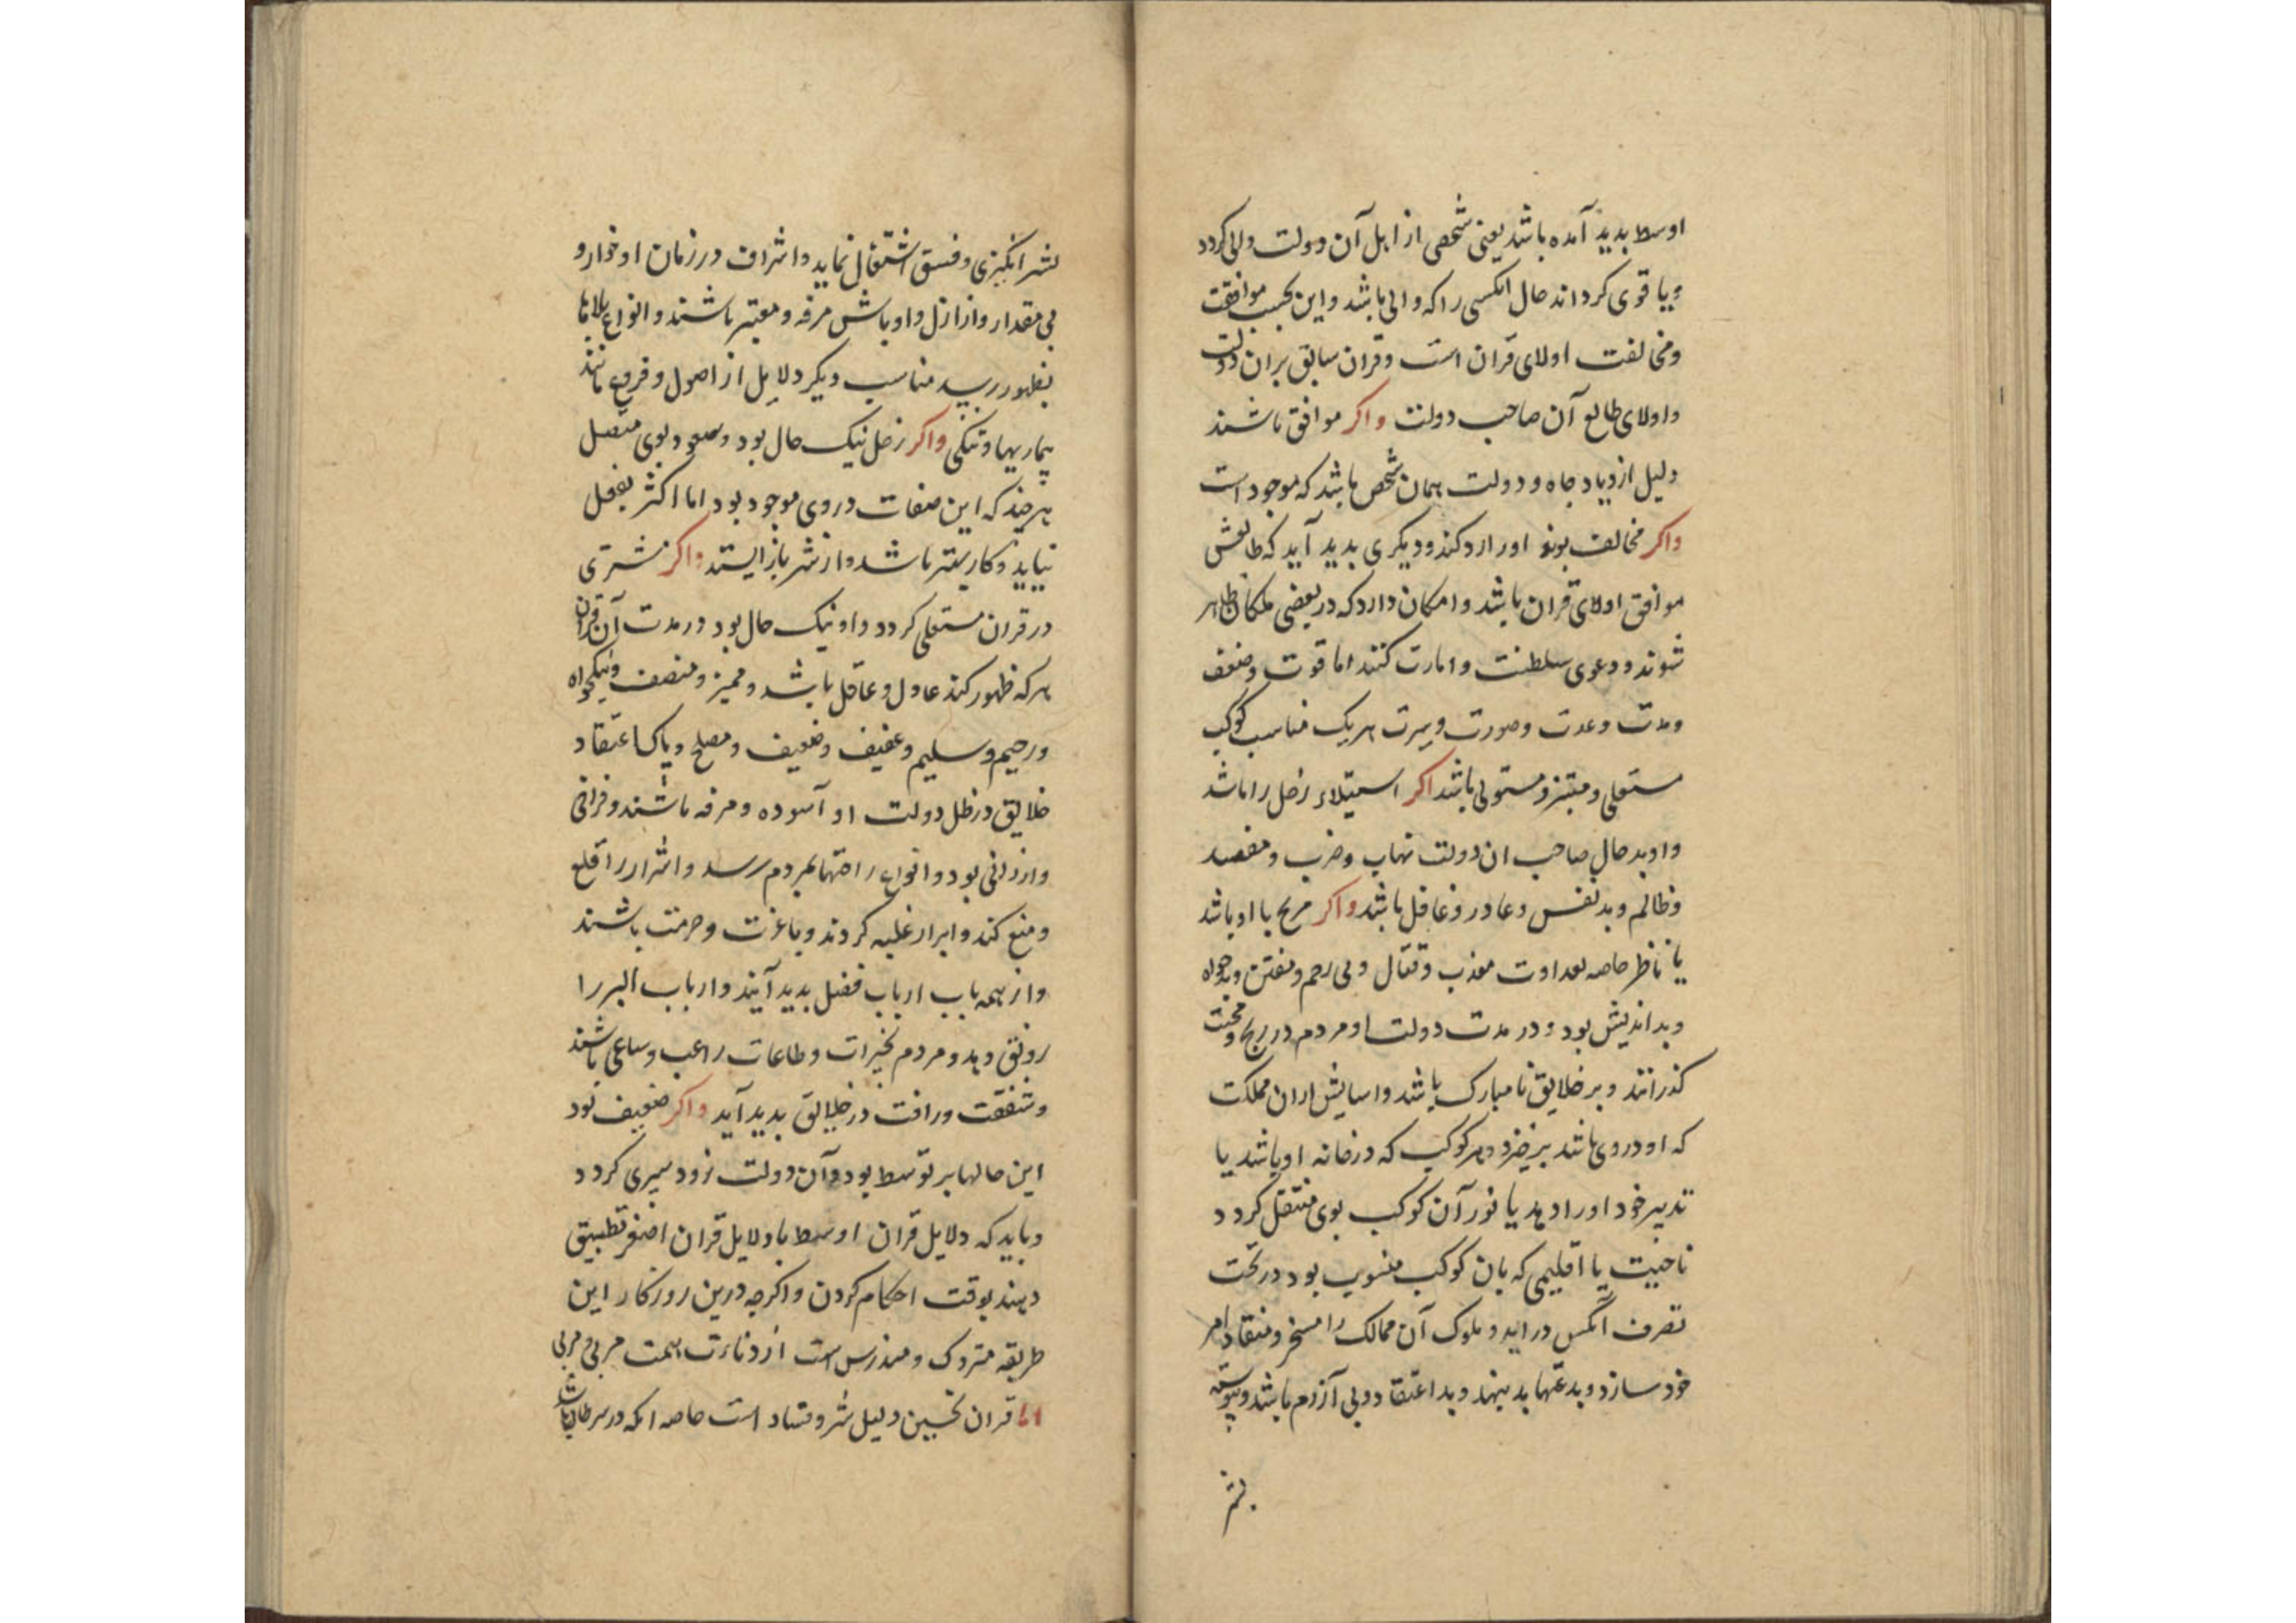 اوسط بدید آمده باشد یعنی شخصی از اهل آن دولت والی کردد
ویا قوی کرداند حال انکسی را که والی باشد واین بحسب موافقت
ومخالفت اولای قران است وقران سابق بران دولت
واولای طالع آن صاحب دولت واکر موافق باشند
دلیل ازدیاد جاه ودولت همان شخص باشد که موجود است
واکر مخالف بوند اورا رد کند ودیکری بدید آید که طالعش
موافق اولای قران باشد وامکان دارد که در بعضی ظاهر
شوند ودعوی سلطنت وامارت کنند اما قوت وضعف
ومدت وعدت وصورت وسیرت هریک مناسب کوکب
مستعلی ومبتز ومستولی باشد اکر استیلاء زحل را باشد
واو بد حال صاحب ان دولت نهاب وخرب ومفسد
وظالم وبد نفس وغادر وغافل باشد واکر مریخ با او باشد
یا ناظر خاصه بعداوت معذب وقتال وبی رحم ومفتن وبدخواه
وبداندیش بود ودر مدت دولت او مردم در رنج ومحنت
کذرانند وبر خلایق نامبارک باشد واسایش ازان مملکت
که او در وی باشد برخیزد وهر کوکب که در خانه او باشد یا
تدبیر خود اورا دهد یا نور آن کوکب بوی منتقل کردد
ناحیت یا اقلیمی که بان کوکب منسوب بود در تحت
تصرف آنکس دراید وملوک آن ممالک را مسخر ومنقاد امر
خود سازد وبدعتها بد بنهد وبد اعتقاد وبی آزرم باشد وپیوسته
بشر
بشر انکیزی وفسق اشتغال نماید واشراف در زمان او خوار و
بی مقدار واراذل واوباش مرفه ومعتبر باشند وانواع بلاها
بظهور رسد مناسب دیکر دلایل از اصول وفروع مانند
بیماریها وتنکی واکر زحل نیک حال بود وسعود بوی متصل
هرچند که این صفات در وی موجود بود اما اکثر بفعل
نیاید وکار بستر باشد واز شر باز ایستد واکر مشتری
در قران مستعلی کردد واو نیک حال بود در مدت آن قران
هرکه ظهور کند عادل وعاقل باشد وممیز ومنصف ونیکخواه
ورحیم وسلیم وعفیف وضعیف ومصلح وپاک اعتقاد
خلایق در ظل دولت او آسوده ومرفه باشند وفراخی
وارزانی بود وانواع راحتها بمردم رسد واشرار را قلع
ومنع کند وابرار غلبه کردند وبا عزت وحرمت باشند
واز همه باب ارباب فضل بدید آیند وارباب البر را
رونق دهد ومردم بخیرات وطاعات راغب وساعی باشند
وشفقت ورافت در خلایق بدید آید واکر ضعیف بود
این حالها بر توسط بود وآن دولت زود سپری کردد
وباید که دلایل قران اوسط با دلایل قران اصغر تطبیق
دهند بوقت احکام کردن واکرچه درین روزکار این
طریقه متروک ومندرس است از دناءت همت مربی ومربی
اما قران نحسین دلیل شر وفساد است خاصه انکه در سرطان باشد